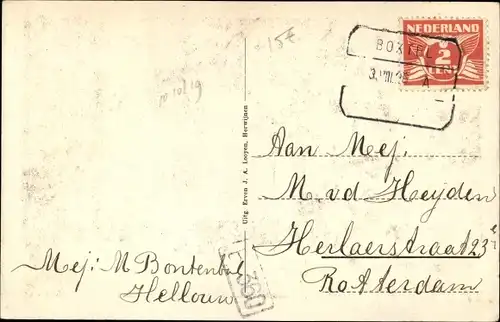 15€
NEDERLAND
2
CENT
BOXTEL
A
Uitg. Erven J. A. Looyen, Herwijnen
Aan Mej.
M. v d Heyden
Herlaerstraat 23
Rotterdam
Mej: M Bontenbal
Hellouw